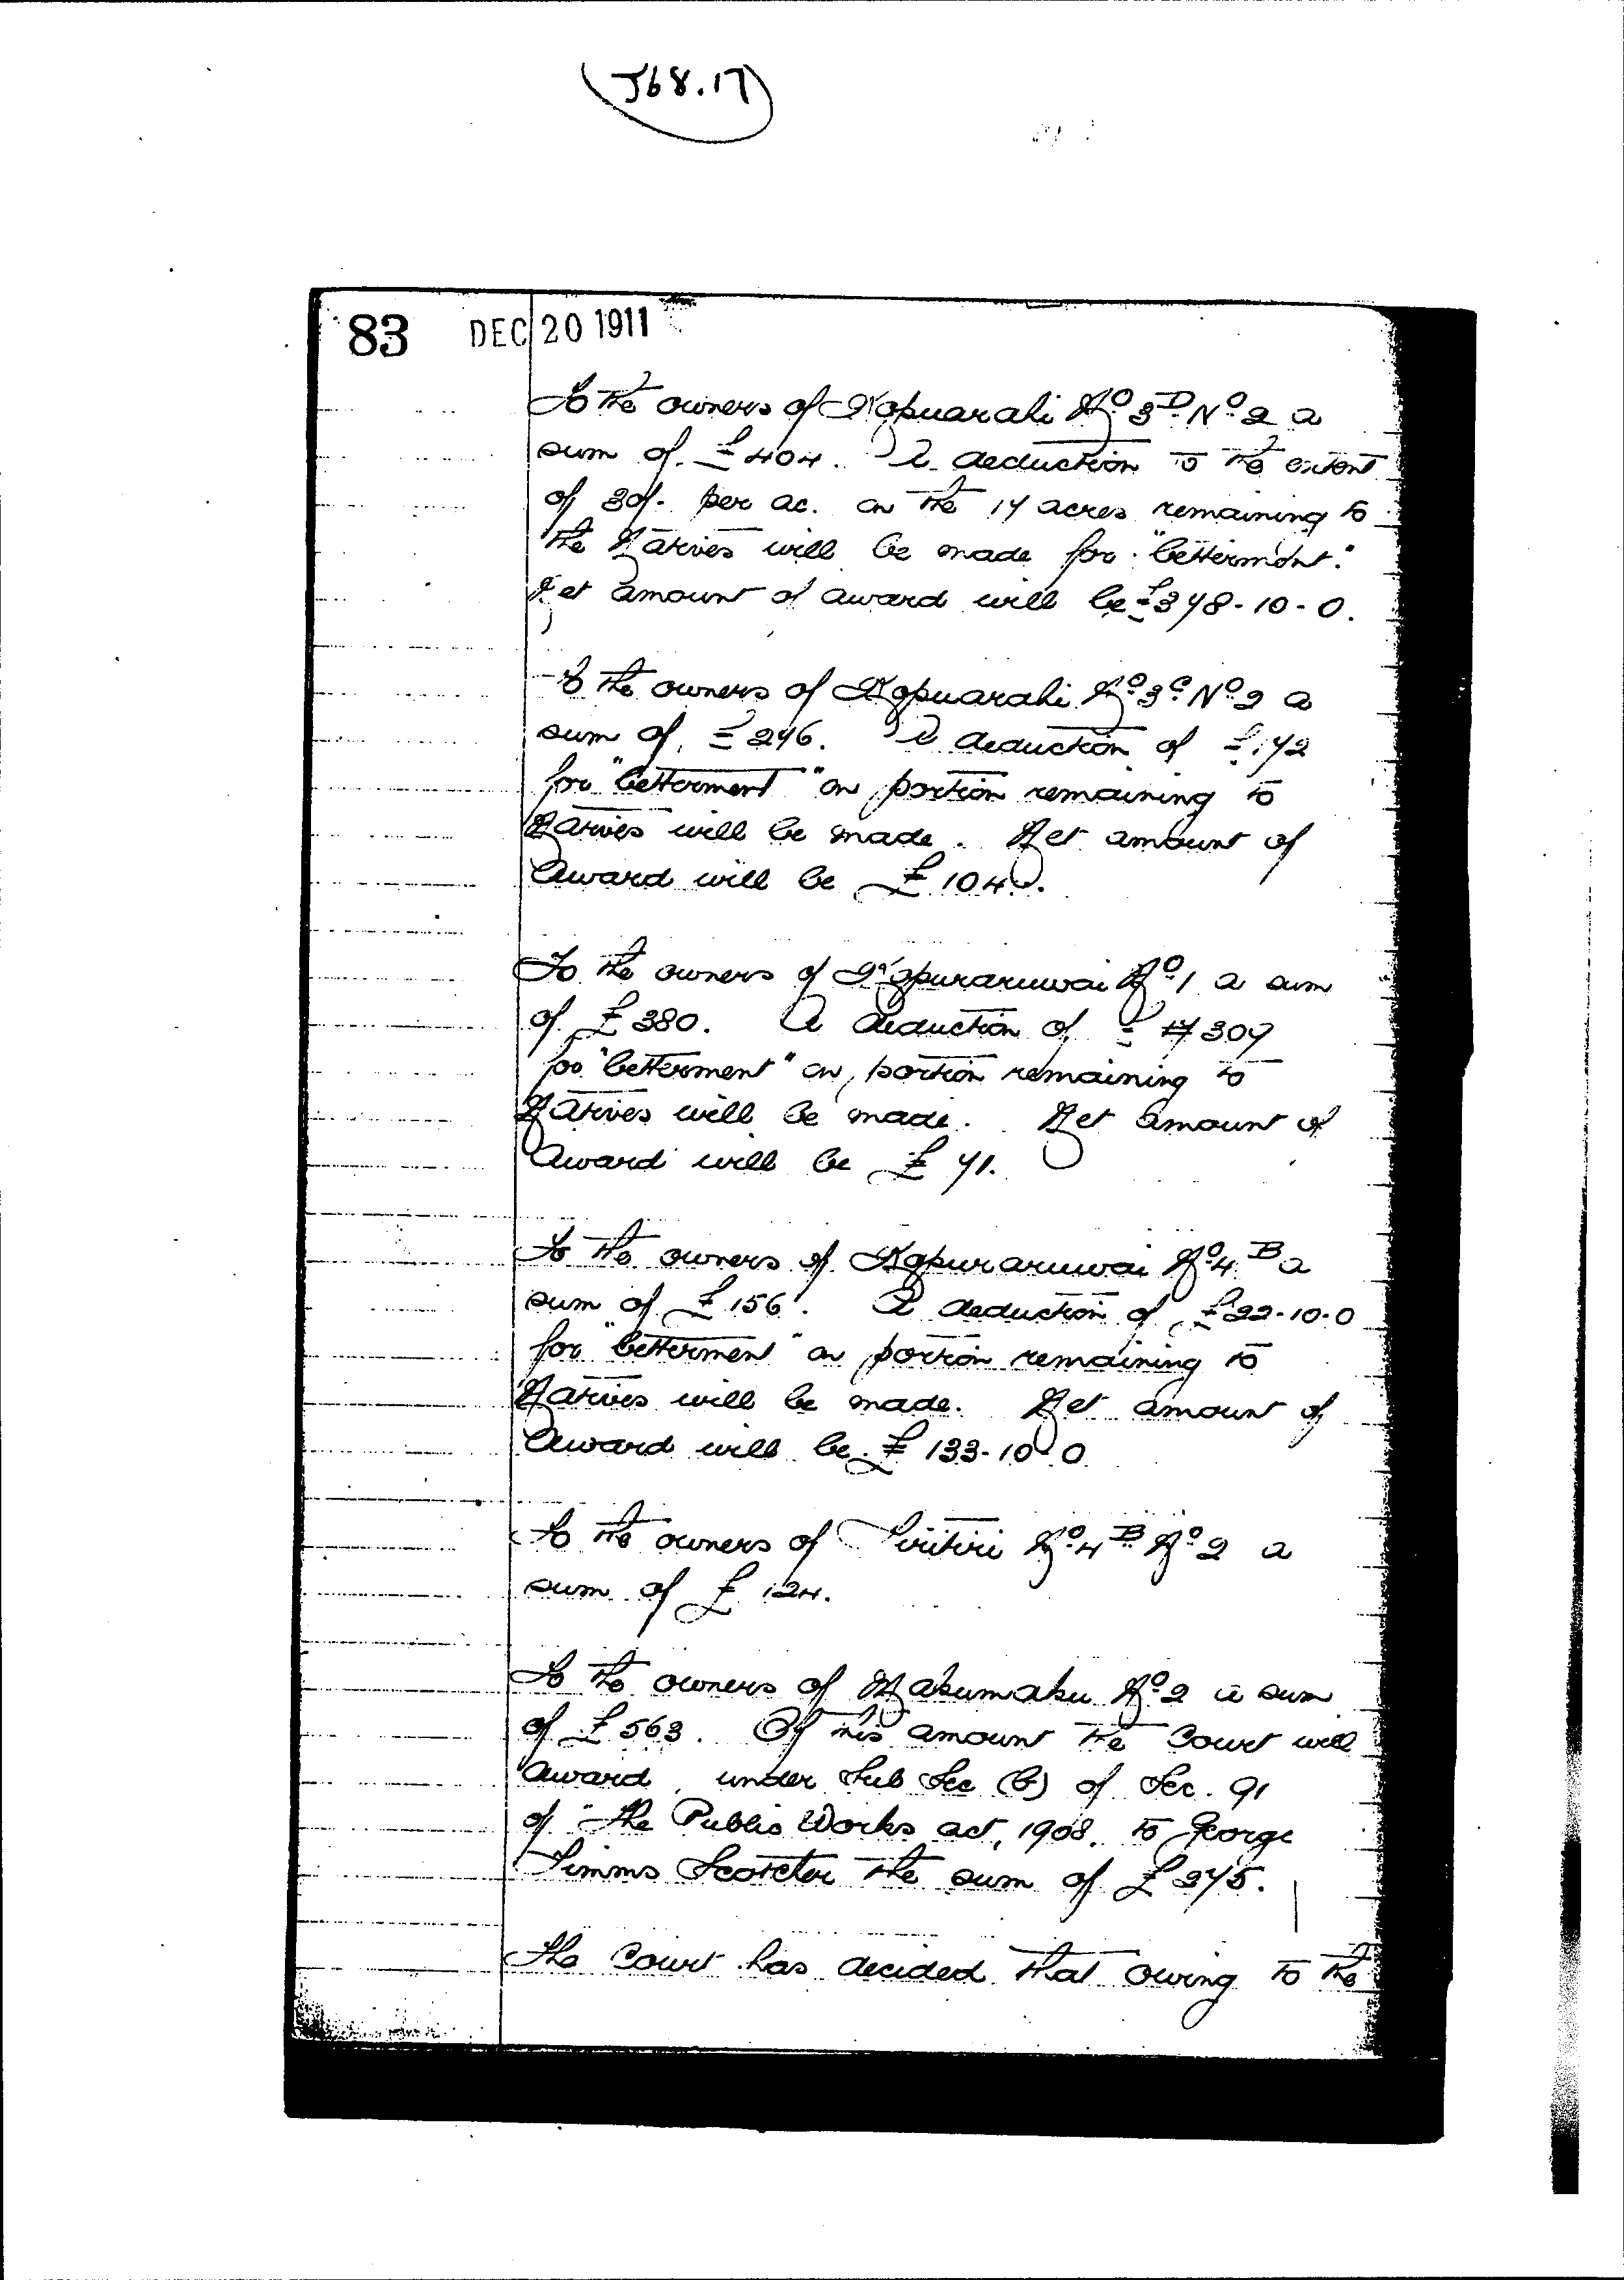 J68.17
83 DEC 20 1911
To the owners of Kopuarahi No 3D No 2 a
sum of £404. A deduction to the extent
of 30/- per ac. on the 17 acres remaining to
the Natives will be made for "betterment."
Net amount of award will be £378-10-0.
To the owners of Kopuarahi No 3C No 2 a
sum of £276. A deduction of £172
for "betterment" on portion remaining to
Natives will be made. Net amount of
Award will be £104.
To the owners of Kopuraruwai No 1 a sum
of £380. A deduction of £309
for "betterment" on portion remaining to
Natives will be made. Net amount of
Award will be £71.
To the owners of Kopuraruwai No 4B a
sum of £156. A deduction of £22-10-0
for "betterment" on portion remaining to
Natives will be made. Net amount of
Award will be £133-10-0
To the owners of Tiritiri No 4B No 2 a
sum of £124.
To the owners of Makumaku No 2 a sum
of £563. Of this amount the Court will
award, under Sub Sec (b) of Sec. 91
of "The Public Works act, 1908, to George
Simms Scotcher the sum of £275.
The Court has decided that owing to the